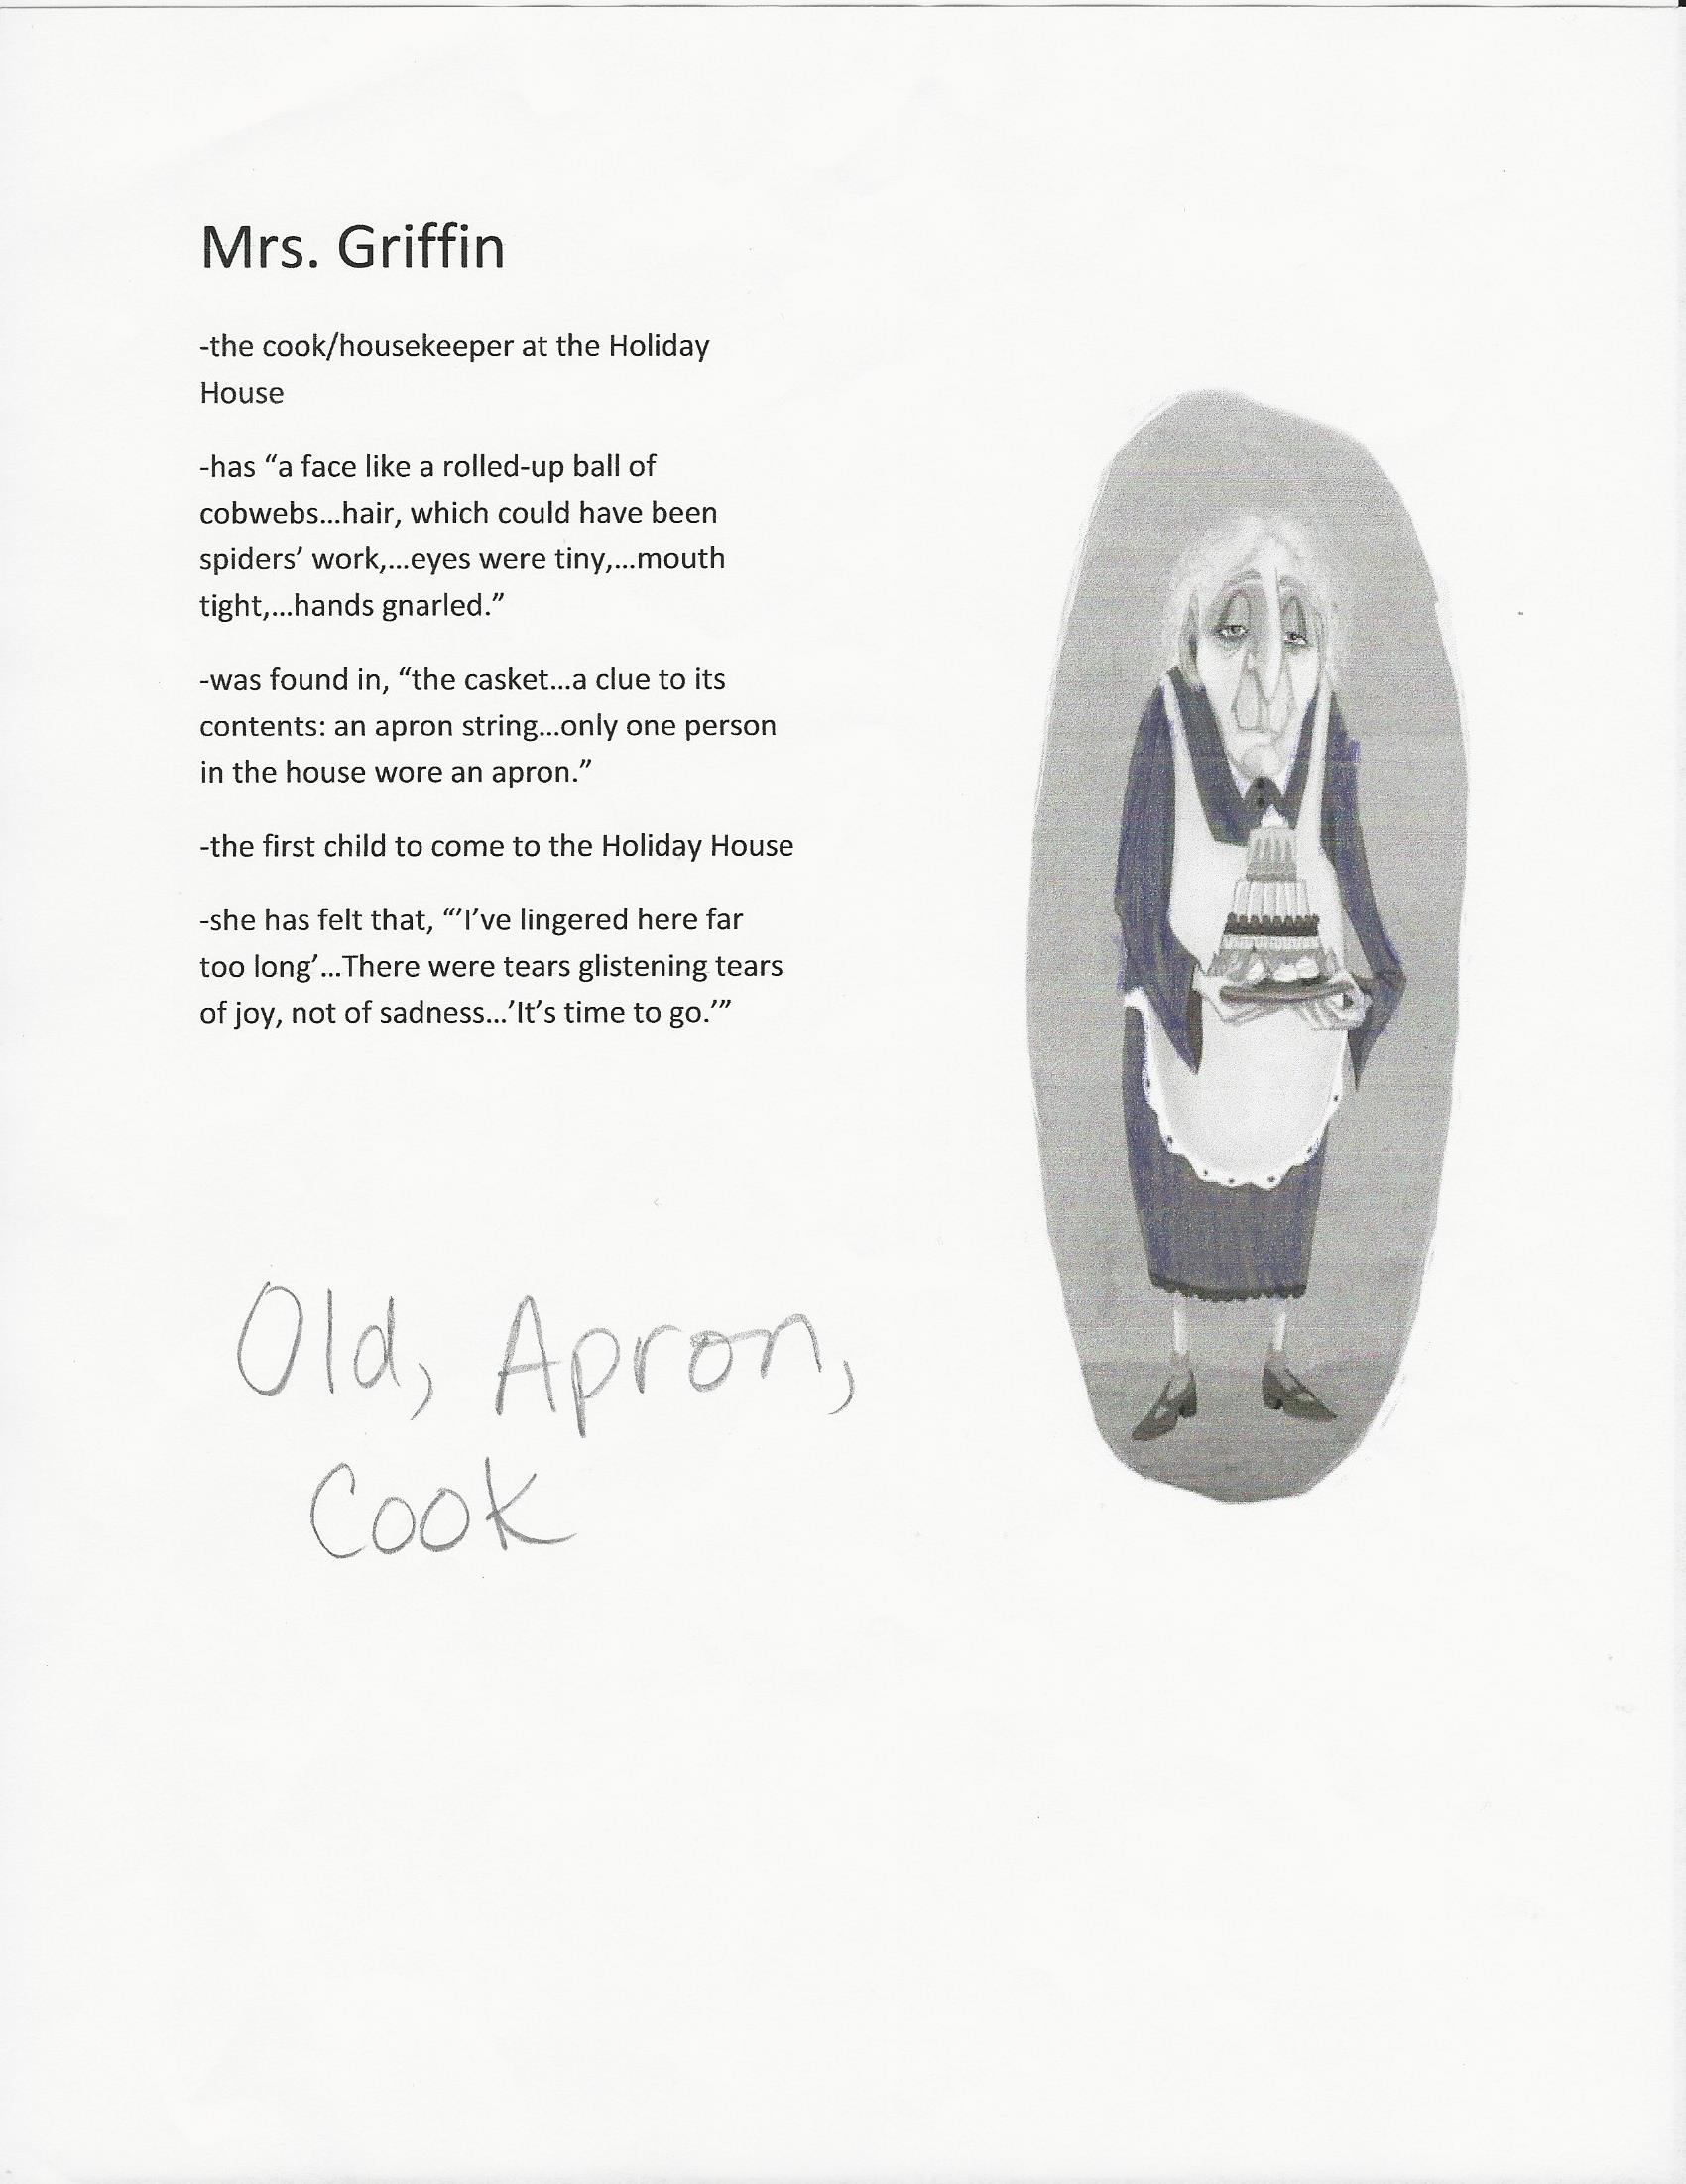 Mrs. Griffin
-the cook/housekeeper at the Holiday
House
-has “a face like a rolled-up ball of
cobwebs…hair, which could have been
spiders’ work,…eyes were tiny,…mouth
tight,…hands gnarled.”
-was found in, “the casket…a clue to its
contents: an apron string…only one person
in the house wore an apron.”
-the first child to come to the Holiday House
-she has felt that, “’I’ve lingered here far
too long’…There were tears glistening tears
of joy, not of sadness…’It’s time to go.’”
Old, Apron,
Cook